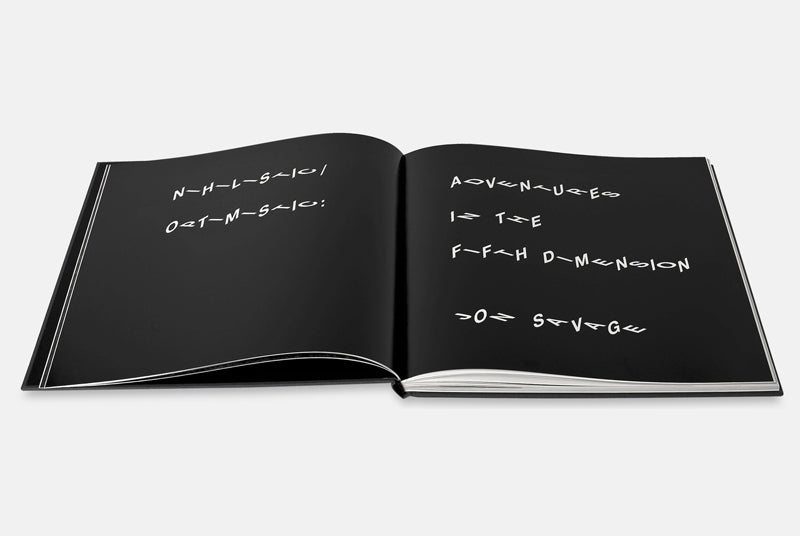 NIHILISTIC/
OPTIMISTIC:
ADVENTURES
IN THE
FIFTH DIMENSION
JON SAVAGE